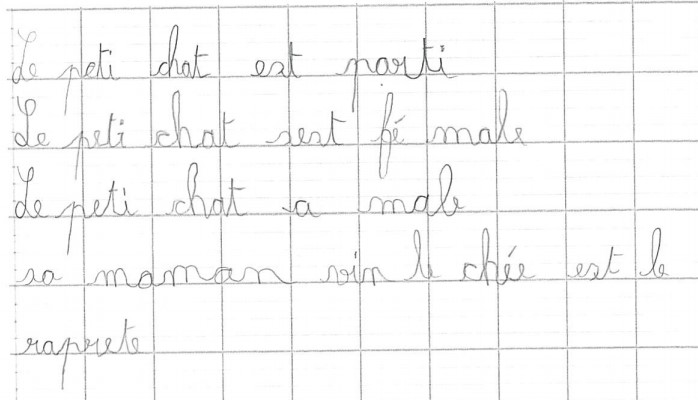 Le peti chat est parti
Le peti chat sest fé male
Le peti chat a male
sa maman vin le chée est le
raprete